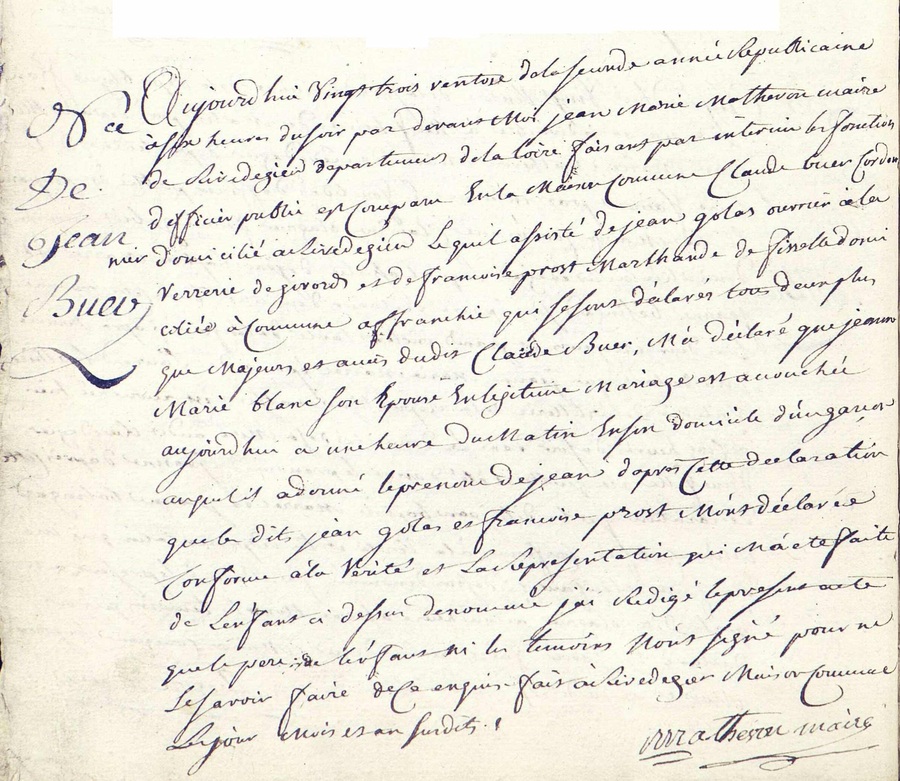 Nce
De
Jean
Buer
Aujourdhui Vingt trois ventose dela seconde année Republicaine
à six heures du soir par devant Moi jean Marie Matheron maire
de Rivedegier departement dela loire faisant par interim les fonctions
d'officier public est Comparu En la Maison Commune Claude buer Cordon
nier domicilié a Rivedegier Lequel assisté de jean golas ouvrier à la
Verrerie de givords et de francoise prost Marchande de ficelle domi
ciliée à Commune affranchie qui se sont déclarés tous deux plus
que Majeurs et amis dudit Claude Buer, M'a déclaré que jeanne
Marie blanc son Epouse En légitime Mariage est accouchée
aujourdhui a une heure du Matin En son domicile d'un garcon
auquel il a donné le prenom de jean d'apres Cette declaration
que les dits jean golas et francoise prost M'ont déclarée
Conforme à la Verité et La Representation qui M'a eté faite
de L'enfant ci dessus denommé j'ai Redigé le present acte
que le pere de l'enfant ni les temoins N'ont signé pour ne
Le savoir faire de Ce enquis fait à Rivedegier Maison Commune
Les jour Mois et an susdits.
Matheron maire